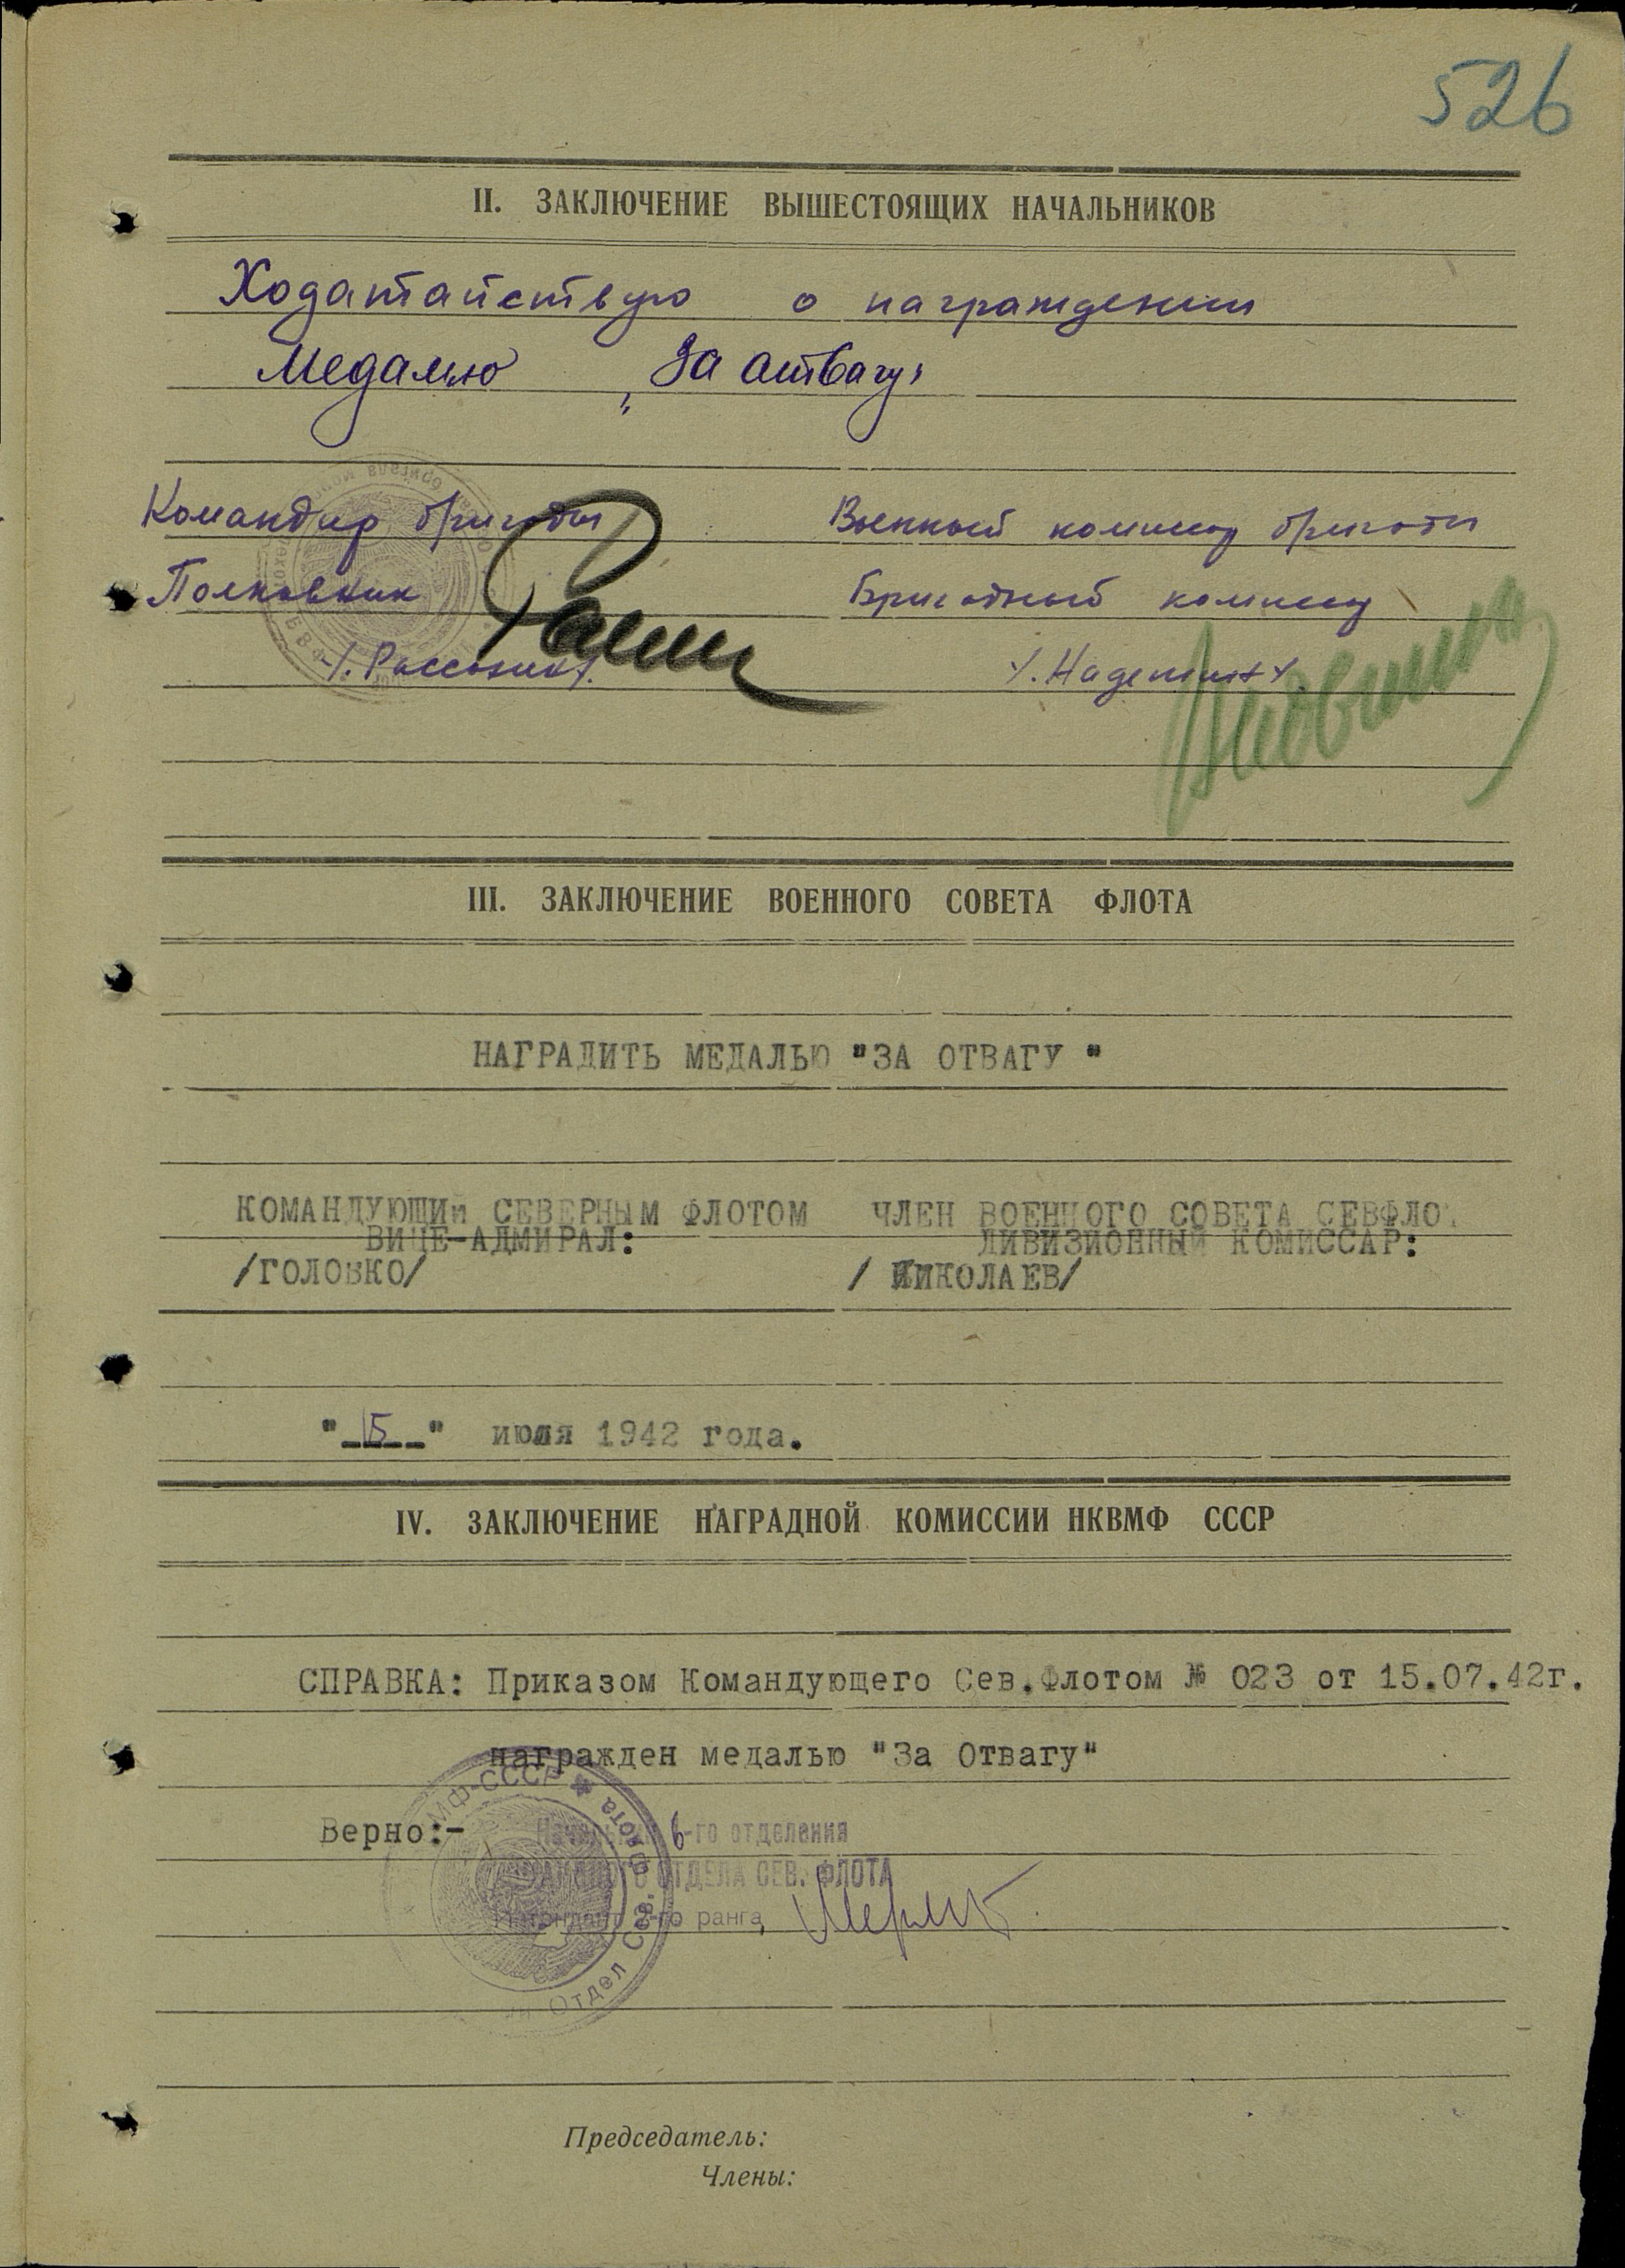 526
II. ЗАКЛЮЧЕНИЕ ВЫШЕСТОЯЩИХ НАЧАЛЬНИКОВ
Ходатайствую о награждении
Медалью „За отвагу"
Командир бригады Военный комиссар бригады
Полковник Бригадный комиссар
/. Рассохин /.
III. ЗАКЛЮЧЕНИЕ ВОЕННОГО СОВЕТА ФЛОТА
НАГРАДИТЬ МЕДАЛЬЮ "ЗА ОТВАГУ "
КОМАНДУЮЩИЙ СЕВЕРНЫМ ФЛОТОМ ЧЛЕН ВОЕННОГО СОВЕТА СЕВФЛО
ВИЦЕ-АДМИРАЛ: ДИВИЗИОННЫЙ КОМИССАР:
/ГОЛОВКО/ / НИКОЛАЕВ/
"15" июля 1942 года.
IV. ЗАКЛЮЧЕНИЕ НАГРАДНОЙ КОМИССИИ НКВМФ СССР
СПРАВКА: Приказом Командующего Сев.Флотом № 023 от 15.07.42г.
награжден медалью "За Отвагу"
Верно:- Начальник 6-го отделения
ОТДЕЛА СЕВ. ФЛОТА
Интендант 2-го ранга
МФ-СССР ✱ Флота Сев. Отдел
Председатель:
Члены: